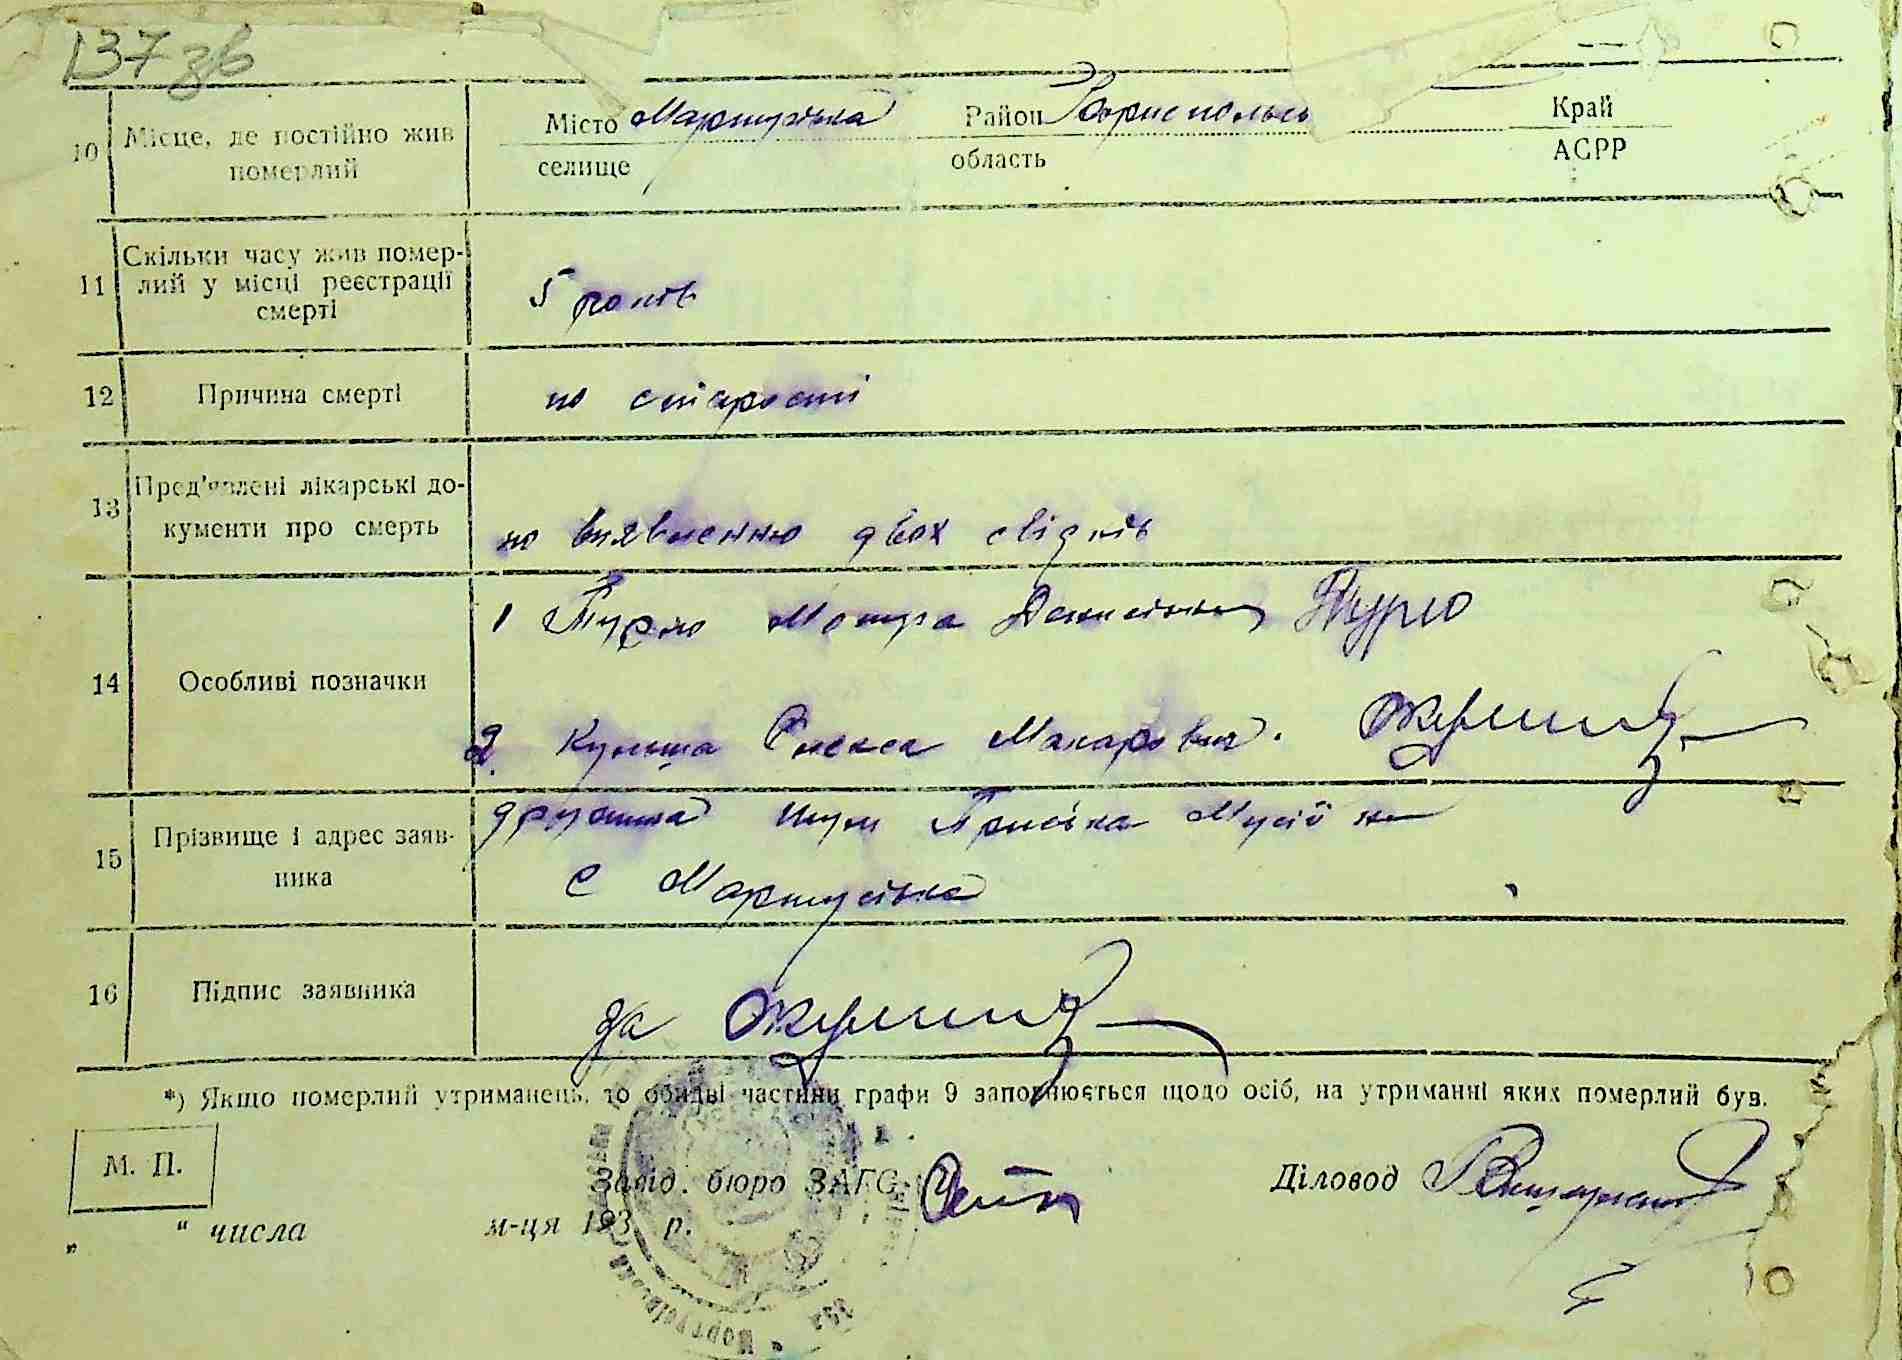 137 зв
10 Місце, де постійно жив померлий
Місто Мартусівка Район Бориспольсь Край
селище область АСРР
11 Скільки часу жив померлий у місці реєстрації смерті
5 років
12 Причина смерті
по старості
13 Пред'явлені лікарські документи про смерть
по виявленню двох свідків
14 Особливі позначки
1 Турло Мотря Денисівна Турло
2. Кульша Олекса Макарович.
15 Прізвище і адрес заявника
дружина Пріська Мусіївна
с Мартусівка
16 Підпис заявника
за
*) Якщо померлий утриманець, то обидві частини графи 9 заповнюється щодо осіб, на утриманні яких померлий був.
М. П.
Завід. бюро ЗАГС
Діловод
„ “ числа м-ця 193 р.